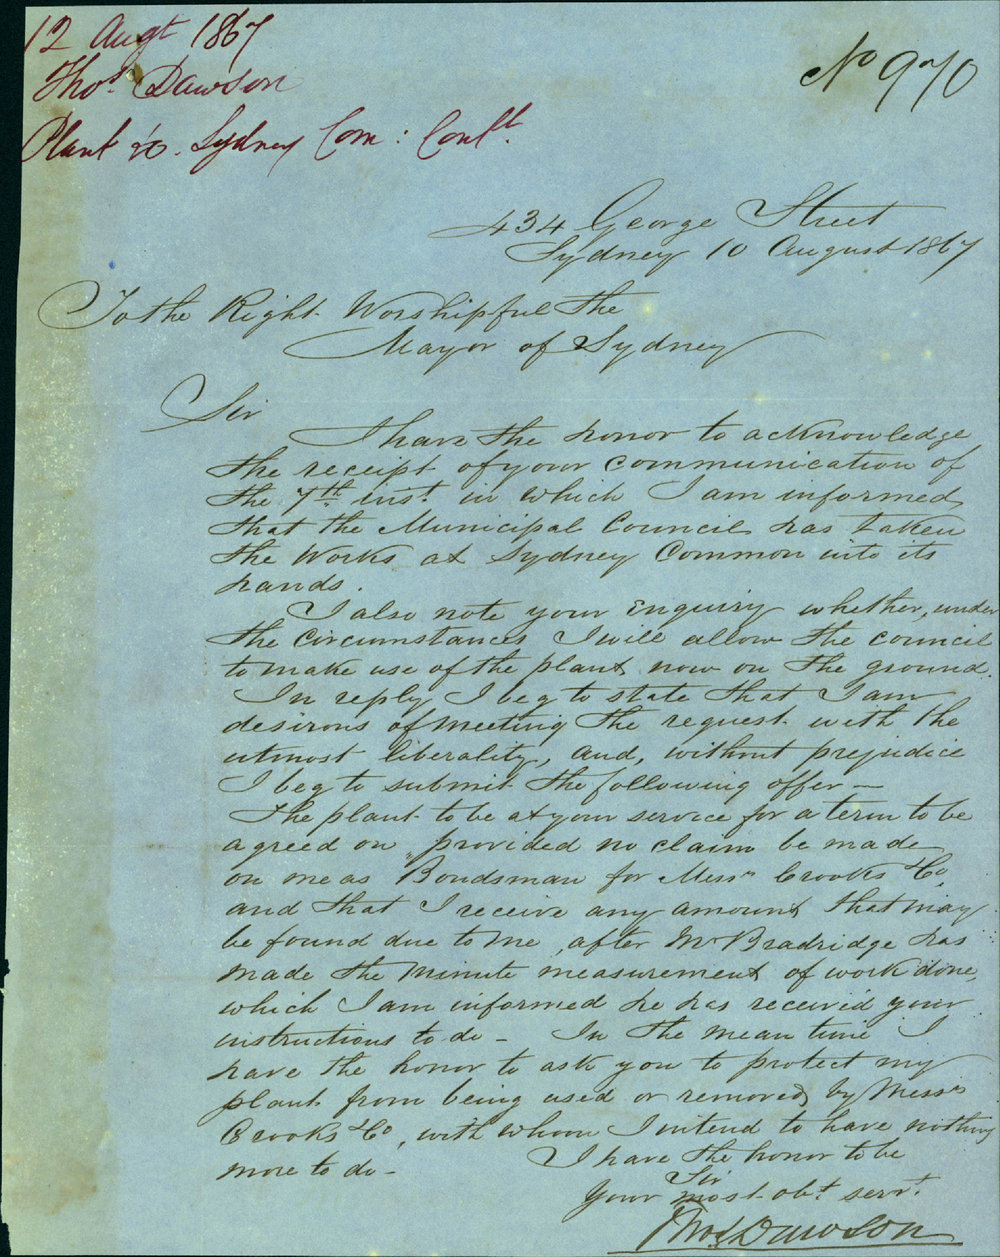 12 Augt 1867
Thos. Dawson
Plant &c. Sydney Com: Contt.
No 970
434 George Street
Sydney 10 August 1867
To the Right Worshipful the
Mayor of Sydney
Sir
I have the honor to acknowledge
the receipt of your communication of
the 7th inst. in which I am informed
that the Municipal Council has taken
the works at Sydney Common into its
hands.
I also note your enquiry whether, under
the circumstances I will allow the council
to make use of the plant now on the ground.
In reply I beg to state that I am
desirous of meeting the request with the
utmost liberality, and, without prejudice
I beg to submit the following offer —
The plant to be at your service for a term to be
agreed on, provided no claim be made
on me as Bondsman for Messrs Crooks & Co,
and that I receive any amount that may
be found due to me, after Mr Bradridge has
made the minute measurement of work done,
which I am informed he has received your
instructions to do - In the mean time I
have the honor to ask you to protect my
plant from being used or removed by Messrs
Crooks & Co, with whom I intend to have nothing
more to do - I have the honor to be
Sir
Your most obt. servt.
Thos Dawson